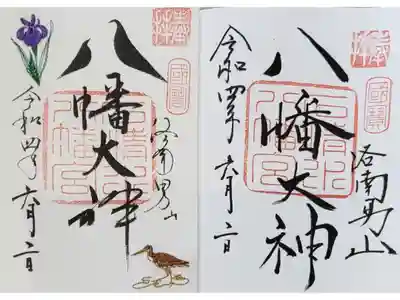 奉拝
國寶
洛南男山
八幡大神
石清水
八幡宮
令和四年六月二日
奉拝
國寶
洛南男山
八幡大神
石清水
八幡宮
令和四年六月二日